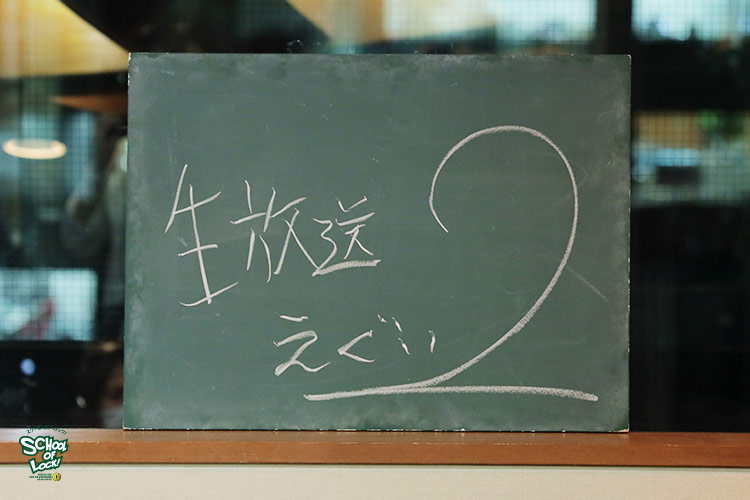 生放送
えぐい
2
SCHOOL
OF
LOCK!